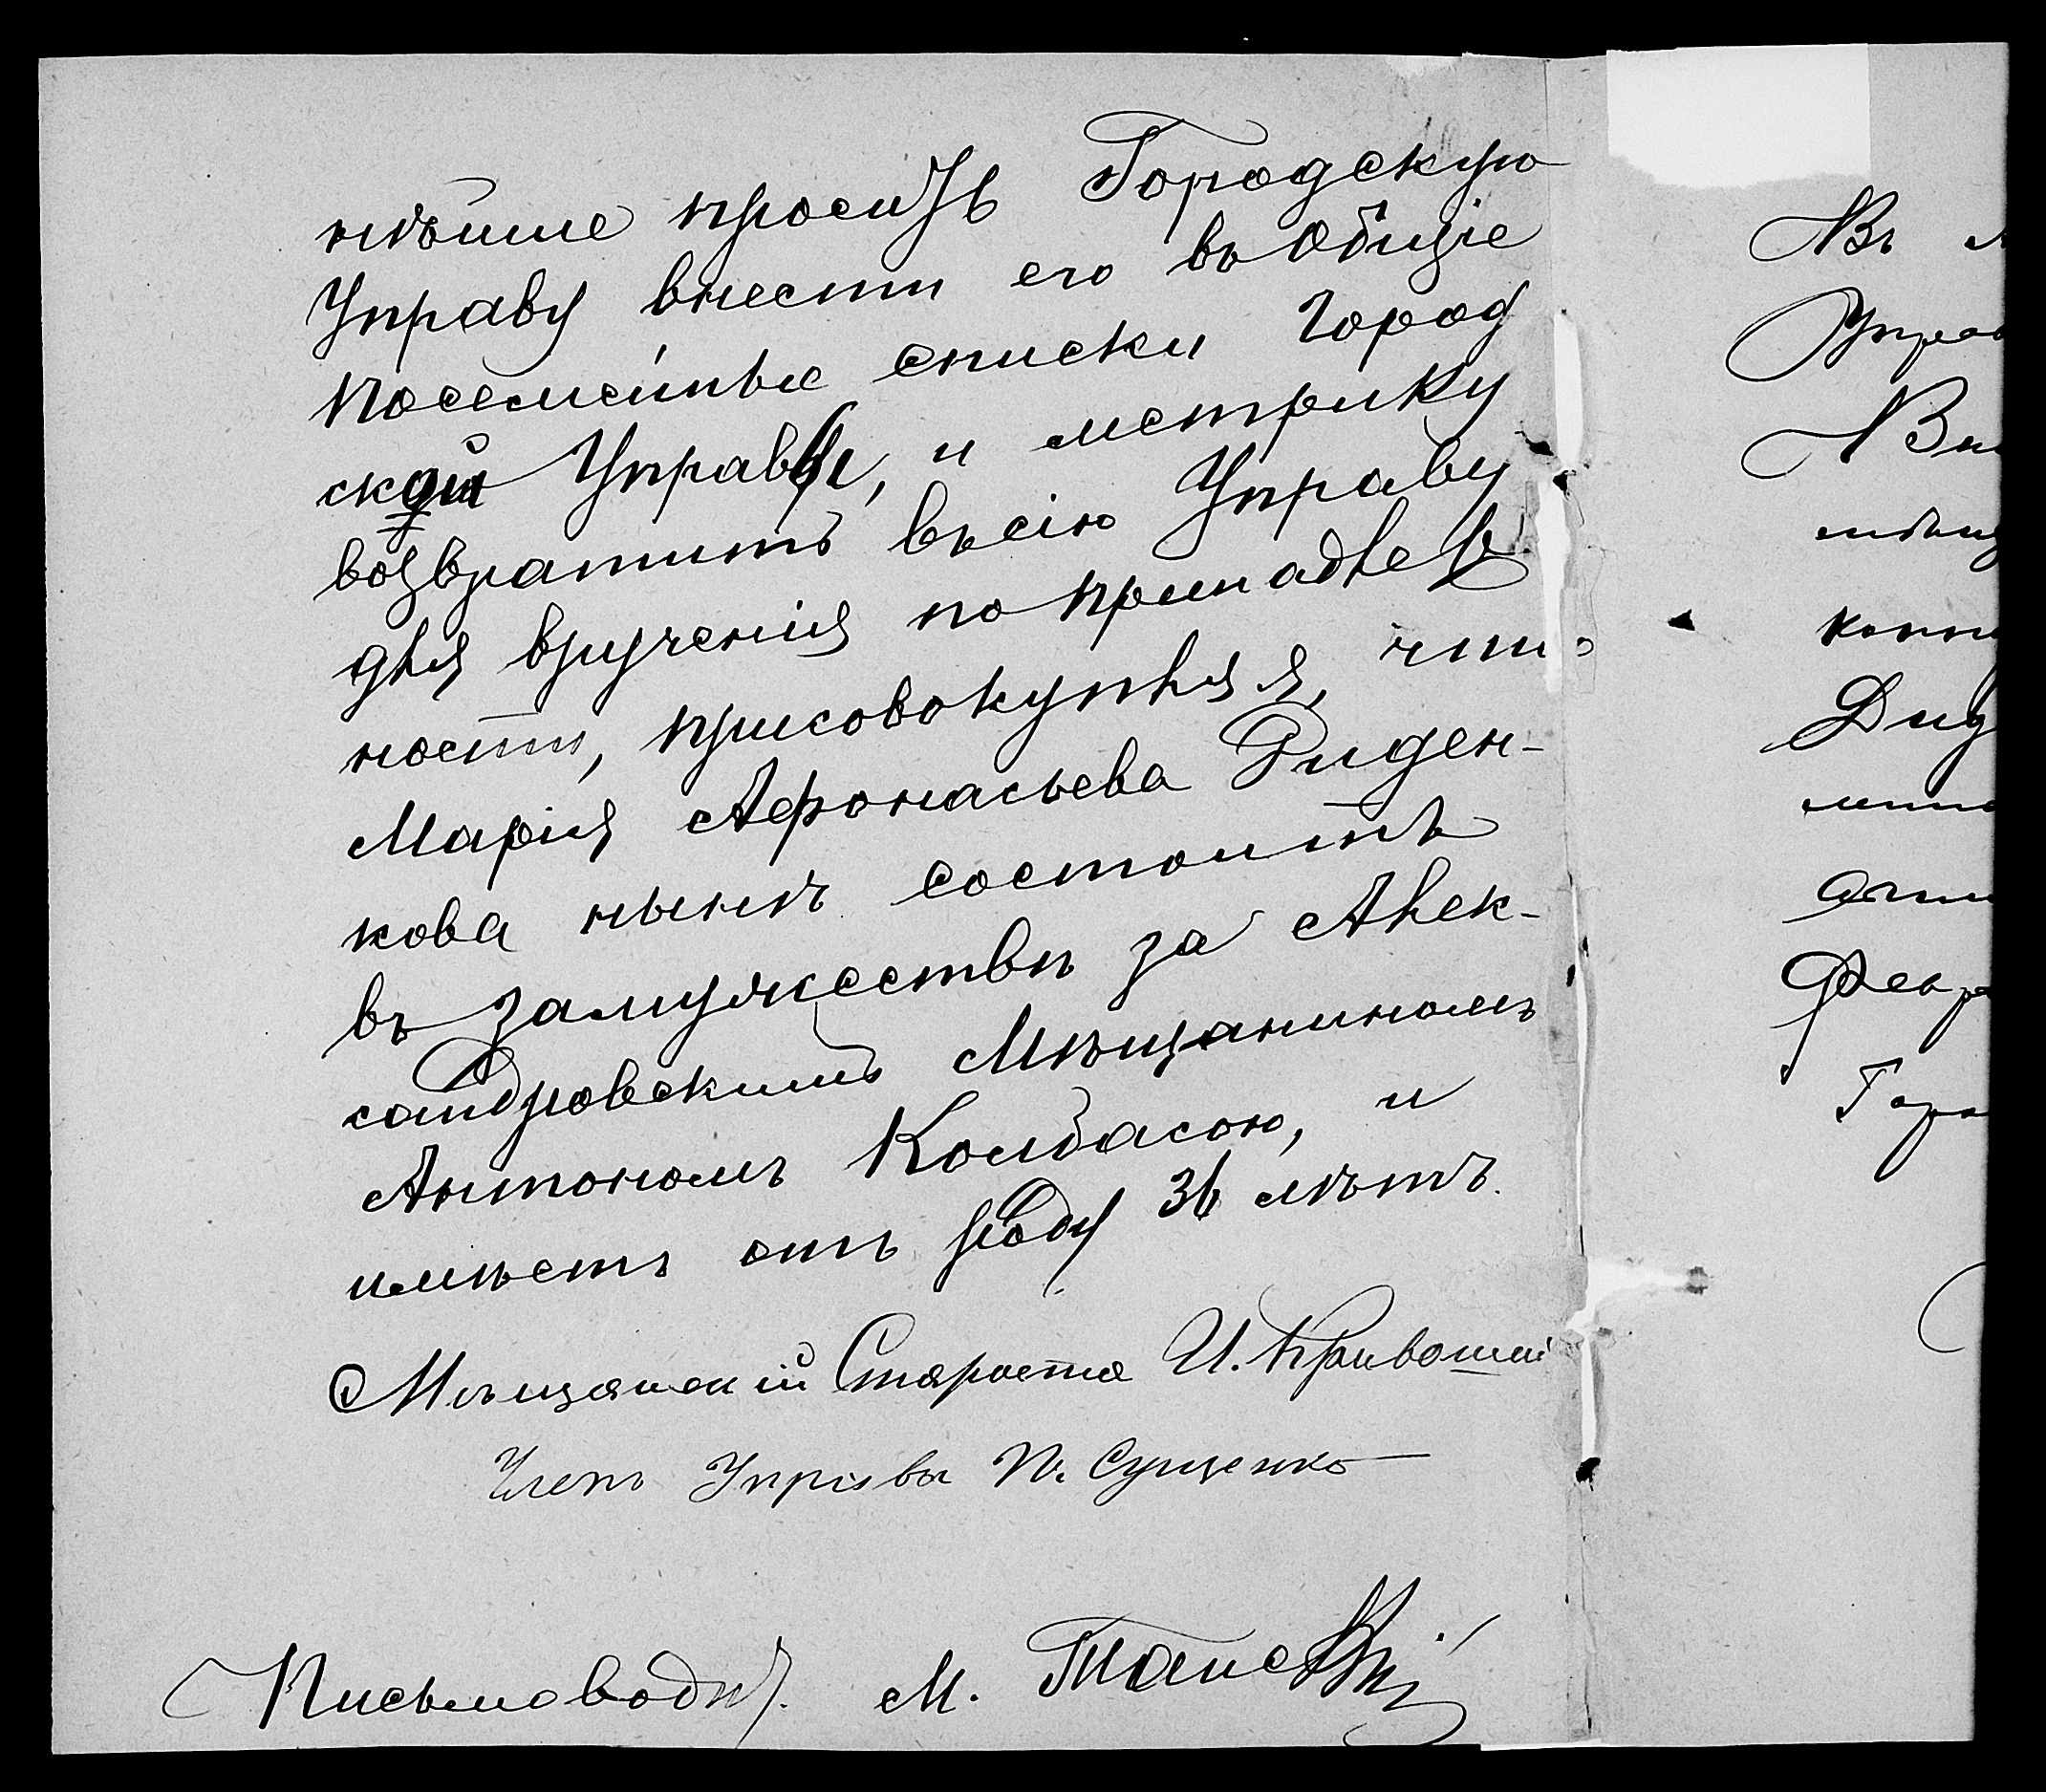 нѣйше проситъ Городскую
Управу внести его въ общіе
посемейные списки Город
ской Управы, и метрику
возвратить въ сію Управу
для врученія по принадлеж
ности, присовокупляя, что
Марія Афонасьева Риден-
кова нынѣ состоитъ
въ замужествѣ за Алек-
сандровскимъ Мѣщаниномъ
Антономъ Колбасою, и
имѣетъ отъ роду 36 лѣтъ.
Мѣщанскій Староста И. Кривошей
Членъ Управы П. Сущенко
Письмоводит. М.
Въ
Управ
Вн
мѣщ
копи
Дид
Февр
Горо